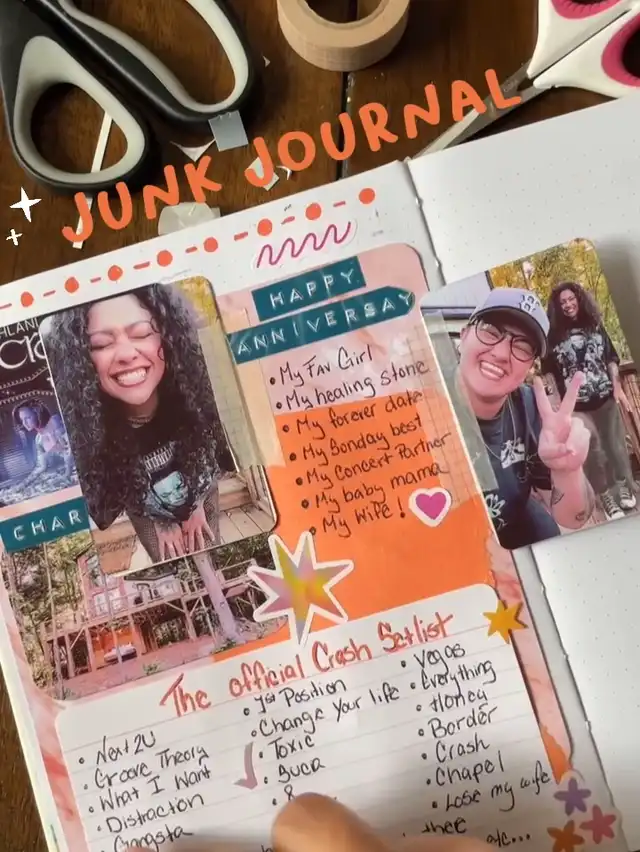 JUNK JOURNAL
HAPPY
ANNIVERSAY
• My Fav Girl
• My healing stone
• My forever date
• My Sonday best
• My Concert Partner
• My baby mama
• My Wife!
CHAR
The official Crash Setlist
• Next 2U
• Groove Theory
• What I Want
• Distracton
• Gangsta
• 1st Position
• Change Your life
• Toxic
• Buca
• 8
• Vegas
• Everything
• Honey
• Border
• Crash
• Chapel
• Lose my wife
thee